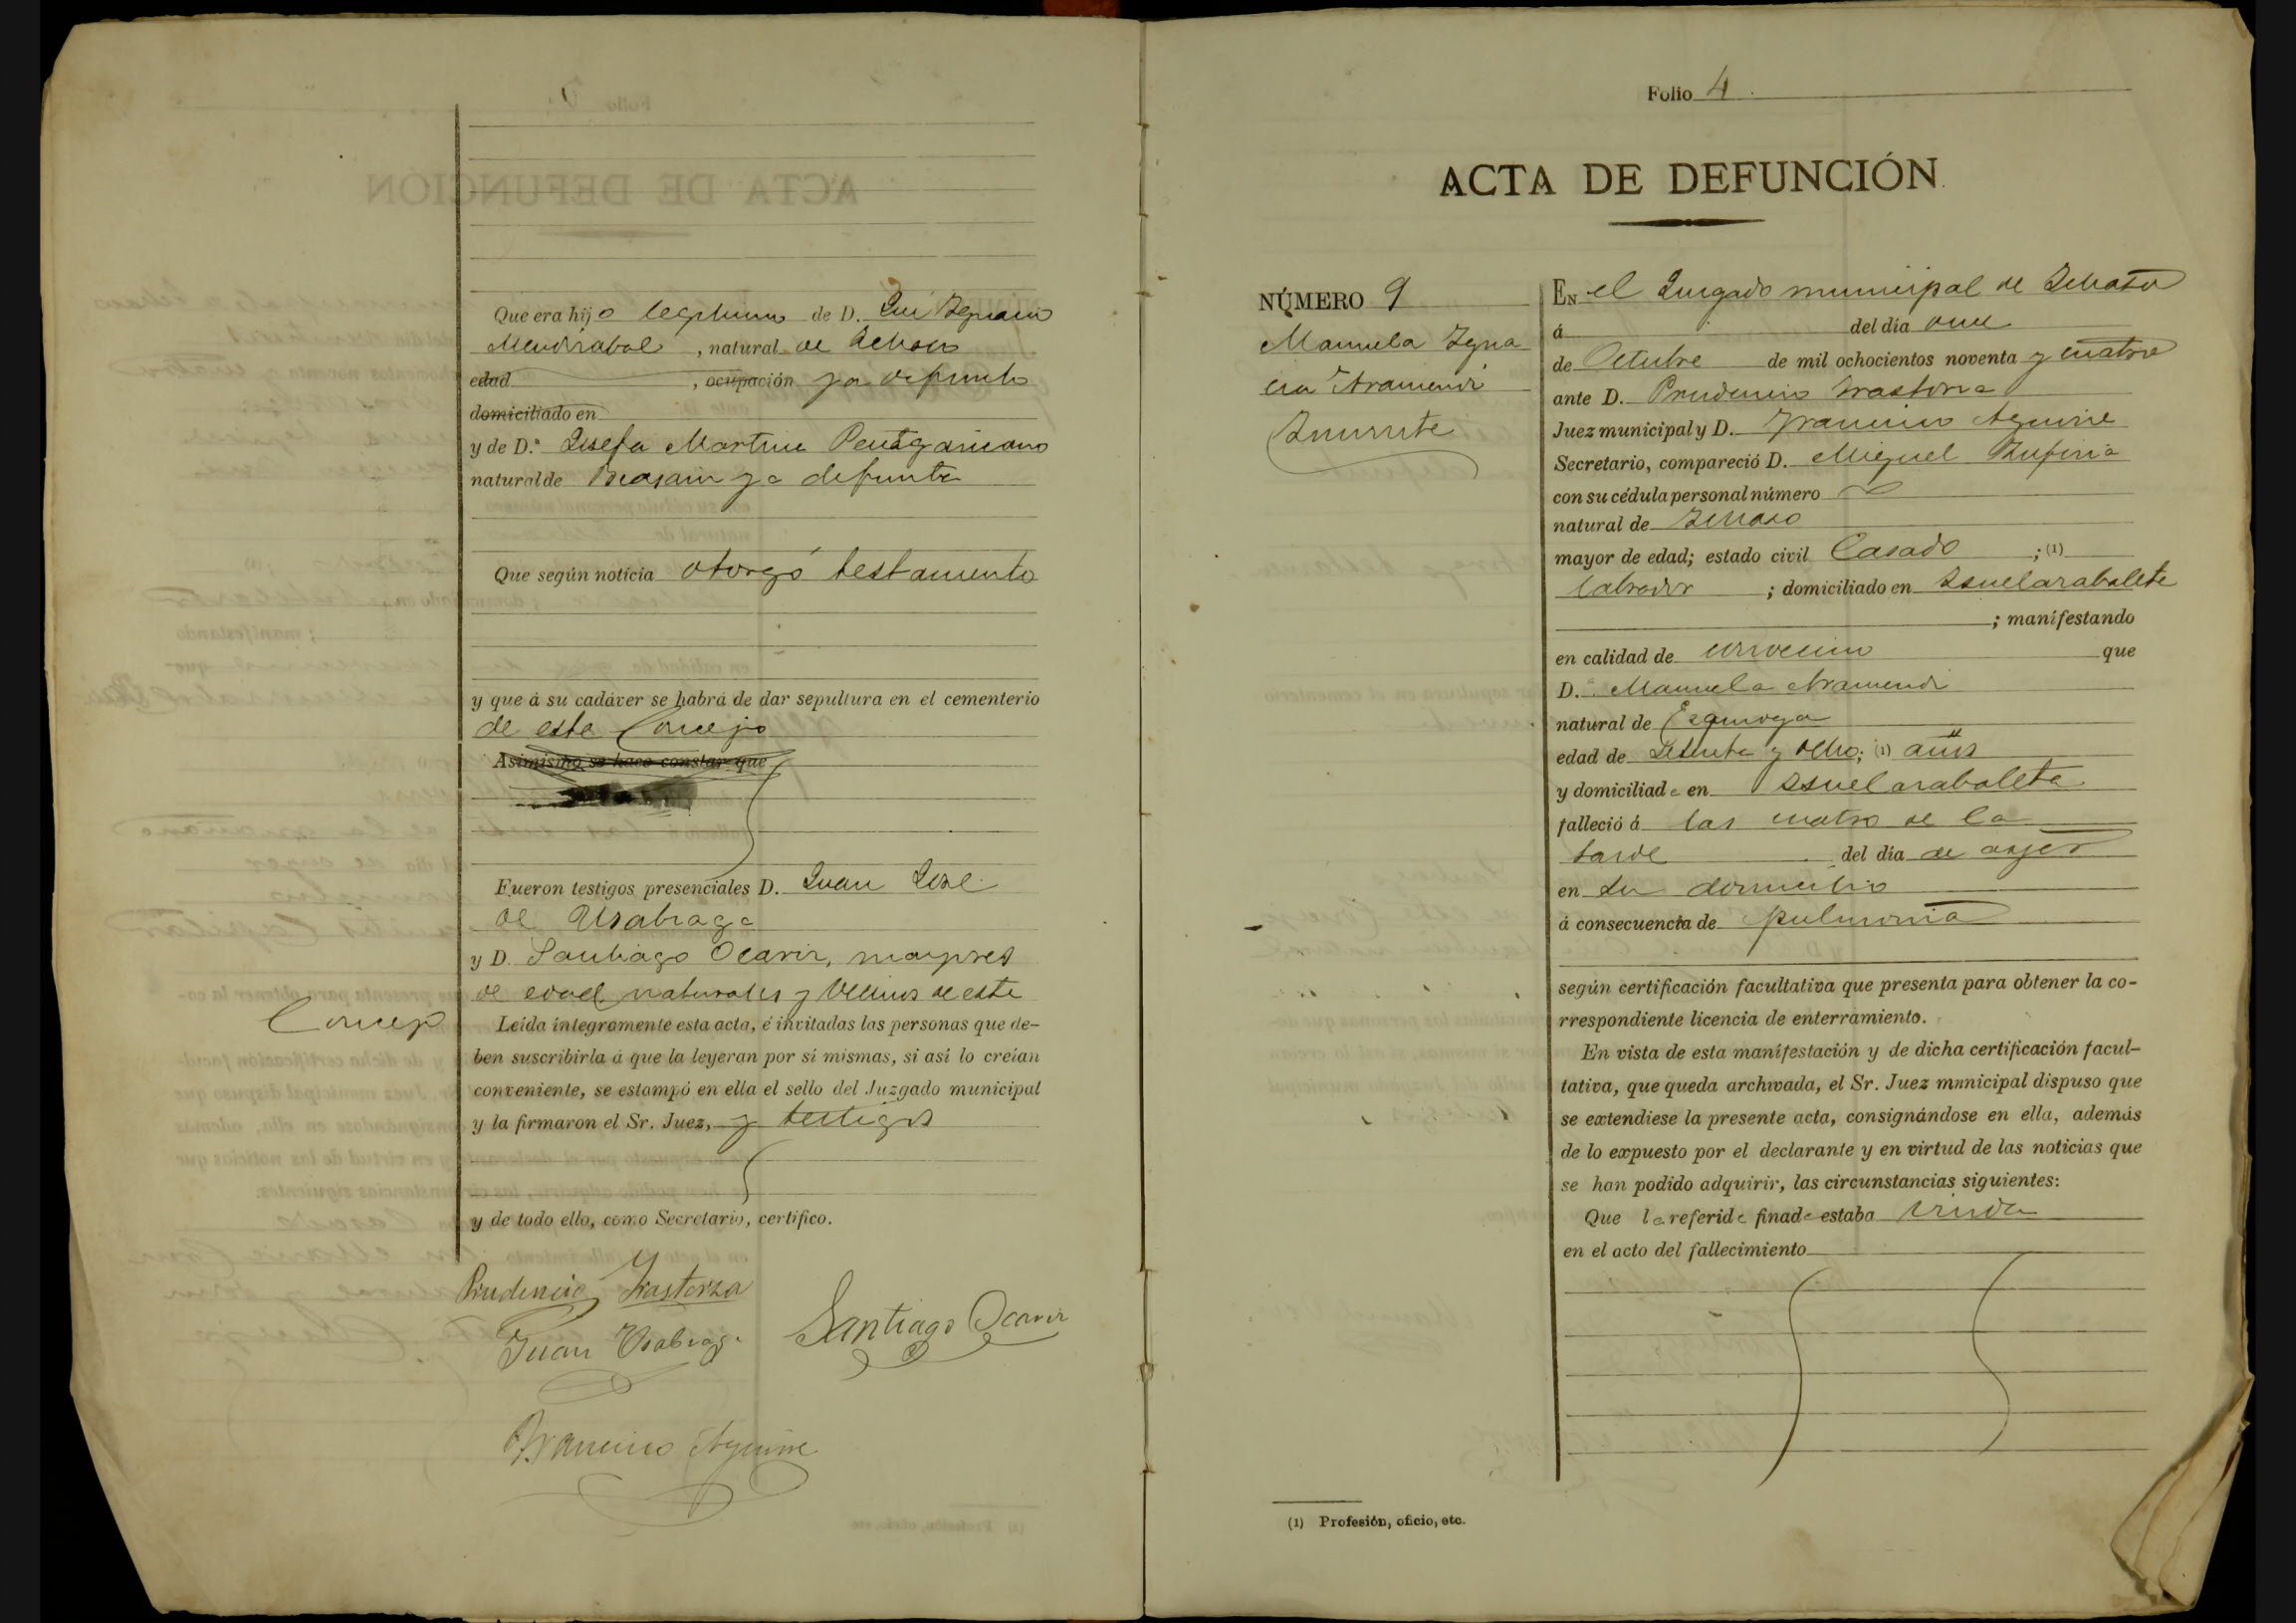 Que era hijo legitimo de D. Luis Ignacio
Mendizabal, natural de Ichaso
edad, ocupación ya defunto
domiciliado en
y de D.ª Josefa Martina
natural de Beasain ya defunta
Que según noticia otorgó testamento
y que á su cadáver se habrá de dar sepultura en el cementerio
de este Concejo
Asimismo se hace constar que
Fueron testigos presenciales D. Juan José
de Usabiaga
y D. Santiago Ocariz, mayores
de edad, naturales y vecinos de este
Concejo
Leída íntegramente esta acta, é invitadas las personas que de-
ben suscribirla á que la leyeran por sí mismas, si así lo creían
conveniente, se estampó en ella el sello del Juzgado municipal
y la firmaron el Sr. Juez, y testigos
y de todo ello, como Secretario, certifico.
Prudencio Yrastorza
Juan Usabiaga
Santiago Ocariz
Francisco Aguirre
Folio 4
ACTA DE DEFUNCIÓN
NÚMERO 9
Manuela Igna
cia Aramendi
En el Juzgado municipal de Ichaso
á del día once
de Octubre de mil ochocientos noventa y cuatro
ante D. Prudencio Irastorza
Juez municipal y D. Francisco Aguirre
Secretario, compareció D. Miguel Zufiria
con su cédula personal número
natural de Ichaso
mayor de edad; estado civil Casado; (1)
labrador; domiciliado en
; manifestando
en calidad de convecino que
D. Manuela Aramendi
natural de Ezquioga
edad de Setenta y ocho; (1) años
y domiciliada en
falleció á las cuatro de la
tarde del día de ayer
en su domicilio
á consecuencia de pulmonia
según certificación facultativa que presenta para obtener la co-
rrespondiente licencia de enterramiento.
En vista de esta manifestación y de dicha certificación facul-
tativa, que queda archivada, el Sr. Juez municipal dispuso que
se extendiese la presente acta, consignándose en ella, además
de lo expuesto por el declarante y en virtud de las noticias que
se han podido adquirir, las circunstancias siguientes:
Que la referida finada estaba viuda
en el acto del fallecimiento
(1) Profesión, oficio, etc.